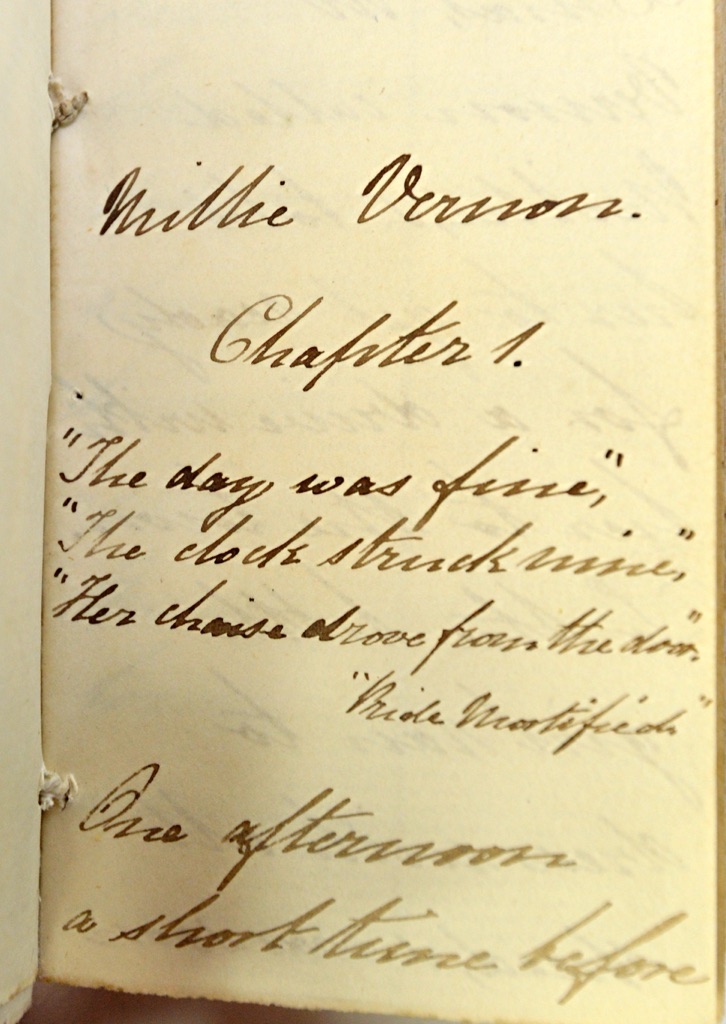 Millie Vernon.
Chapter 1.
"The day was fine,"
"The clock struck nine,"
"Her chaise drove from the door."
"Pride Mortified"
One afternoon
a short time before